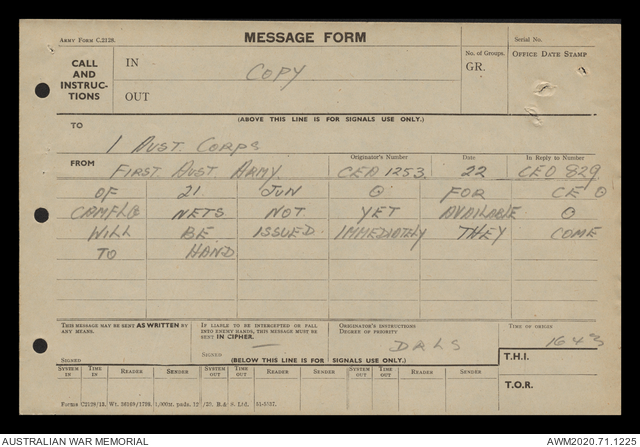 ARMY FORM C.2128.
MESSAGE FORM
Serial No.
CALL AND INSTRUC- TIONS
IN
COPY
OUT
No. of Groups.
GR.
OFFICE DATE STAMP
(ABOVE THIS LINE IS FOR SIGNALS USE ONLY.)
TO
1 AUST. CORPS
FROM Originator's Number Date In Reply to Number
FIRST AUST. ARMY. CEO 1253. 22 CEO 829
OF 21 JUN O FOR CE O
CAMFLG NETS NOT YET AVAILABLE O
WILL BE ISSUED IMMEDIATELY THEY COME
TO HAND
THIS MESSAGE MAY BE SENT AS WRITTEN BY ANY MEANS.
SIGNED
IF LIABLE TO BE INTERCEPTED OR FALL INTO ENEMY HANDS, THIS MESSAGE MUST BE SENT IN CIPHER.
SIGNED
ORIGINATOR'S INSTRUCTIONS
DEGREE OF PRIORITY
DRLS
TIME OF ORIGIN
1643
(BELOW THIS LINE IS FOR SIGNALS USE ONLY.)
T.H.I.
SYSTEM IN TIME IN READER SENDER SYSTEM OUT TIME OUT READER SENDER SYSTEM OUT TIME OUT READER SENDER
T.O.R.
Forms C2128/13. Wt. 38169/1798. B. & S. Ltd. 51-5317.
AUSTRALIAN WAR MEMORIAL
AWM2020.71.1225